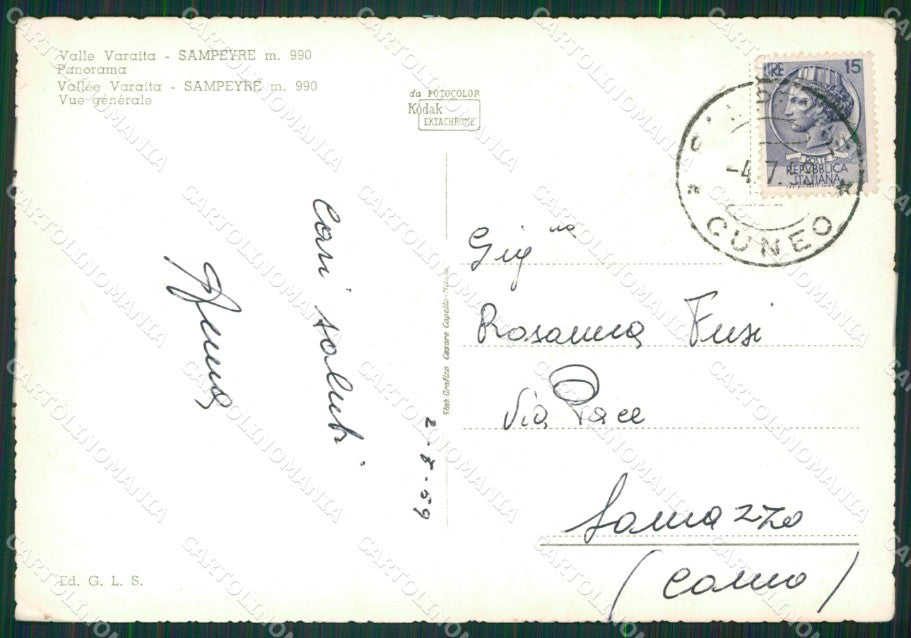 Valle Varaita - SAMPEYRE m. 990
Panorama
Vallée Varaita - SAMPEYRE m. 990
Vue générale
da FOTOCOLOR
Kodak
EKTACHROME
LIRE 15
POSTE
REPVBBLICA
ITALIANA
-4.7.
CUNEO
Cari saluti
2-8-59
Stab. Grafico Cesare Capello - Milano
Sig.na
Rosanna Fusi
Via Pace
Lomazzo
(Como)
Ed. G. L. S.
CARTOLINOMANIA